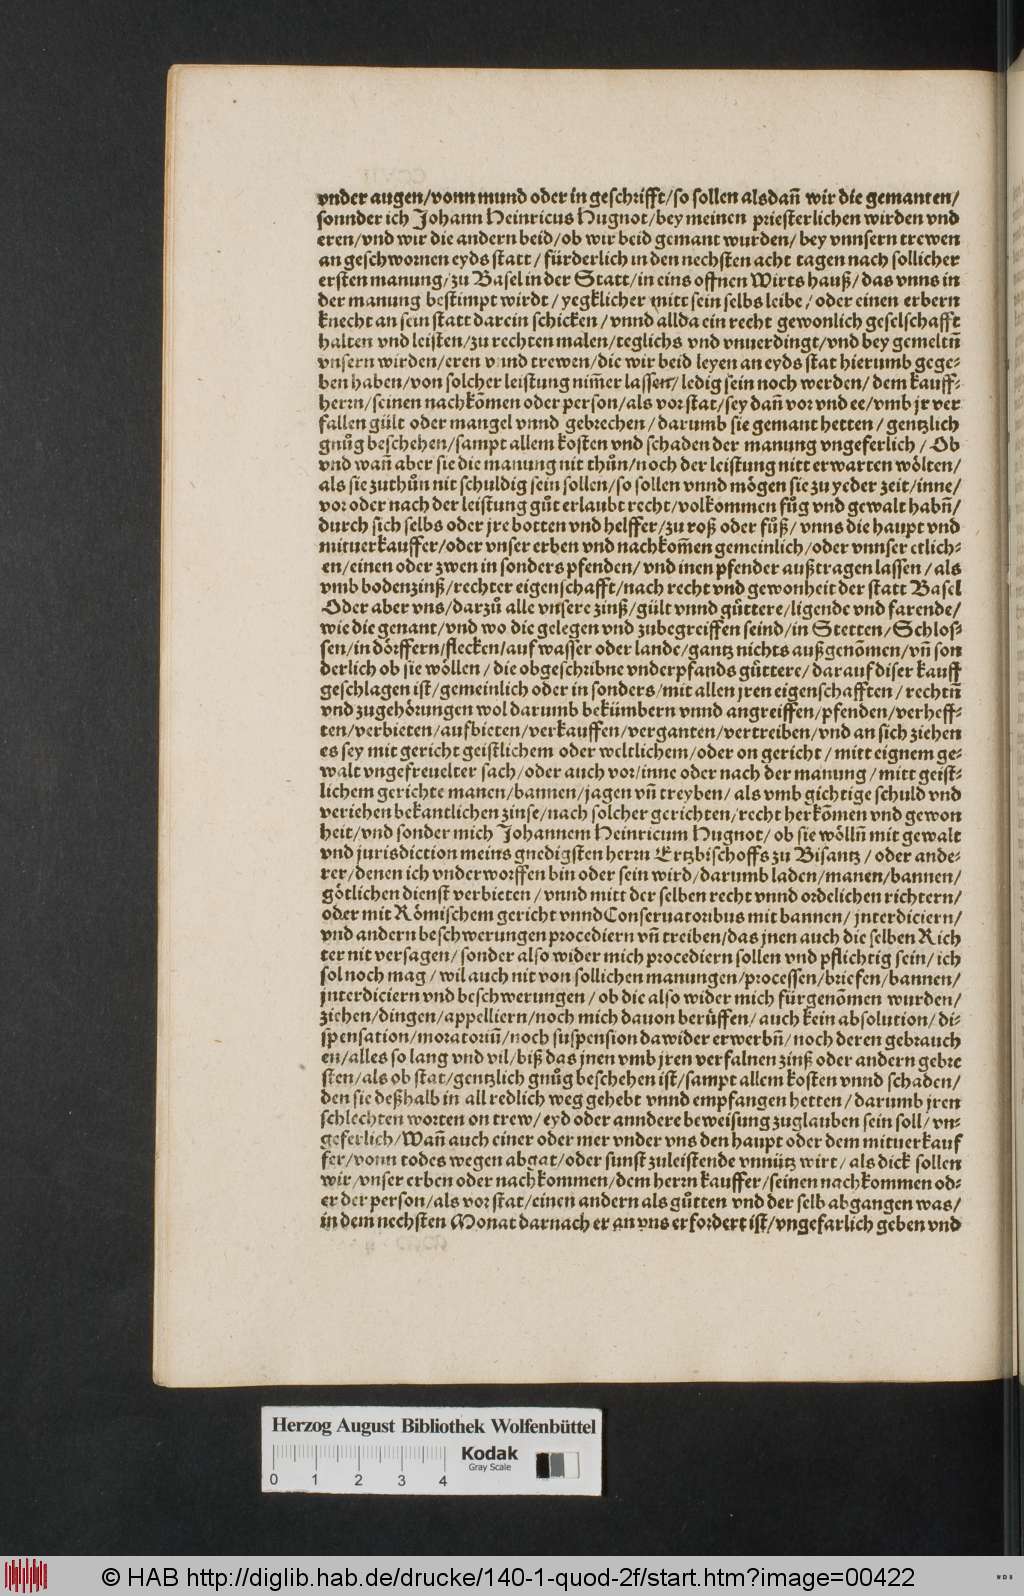 vnder augen/vonn mund oder in geschrifft/so sollen alsdañ wir die gemanten/
sonnder ich Johann Heinricus Hugnot/bey meinen priesterlichen wirden vnd
eren/vnd wir die andern beid/ob wir beid gemant wurden/bey vnnsern trewen
an geschwornen eyds statt/fürderlich in den nechsten acht tagen nach sollicher
ersten manung/zu Basel in der Statt/in eins offnen Wirts hauß/das vnns in
der manung bestimpt wirdt/yegklicher mitt sein selbs leibe/oder einen erbern
knecht an sein statt darein schicken/vnnd allda ein recht gewonlich geselschafft
halten vnd leisten/zu rechten malen/teglichs vnd vnuerdingt/vnd bey gemeltñ
vnsern wirden/eren vnnd trewen/die wir beid leyen an eyds stat hierumb gege⸗
ben haben/von solcher leistung nim̃er lassen/ledig sein noch werden/dem kauff⸗
herrn/seinen nachkõmen oder person/als vor stat/sey dañ vor vnd ee/vmb jr ver
fallen gült oder mangel vnnd gebrechen/darumb sie gemant hetten/gentzlich
gnůg beschehen/sampt allem kosten vnd schaden der manung vngeferlich/Ob
vnd wañ aber sie die manung nit thůn/noch der leistung nitt erwarten wölten/
als sie zuthůn nit schuldig sein sollen/so sollen vnnd mögen sie zu yeder zeit/inne/
vor oder nach der leistung gůt erlaubt recht/volkommen fůg vnd gewalt habñ/
durch sich selbs oder jre botten vnd helffer/zu roß oder fůß/vnns die haupt vnd
mituerkauffer/oder vnser erben vnd nachkom̃en gemeinlich/oder vnnser etlich⸗
en/einen oder zwen in sonders pfenden/vnd inen pfender außtragen lassen/als
vmb bodenzinß/rechter eigenschafft/nach recht vnd gewonheit der statt Basel
Oder aber vns/darzů alle vnsere zinß/gült vnnd gůttere/ligende vnd farende/
wie die genant/vnd wo die gelegen vnd zubegreiffen seind/in Stetten/Schlos⸗
sen/in dörffern/flecken/auf wasser oder lande/gantz nichts außgenõmen/vñ son
derlich ob sie wöllen/die obgeschribne vnderpfands gůttere/darauf diser kauff
geschlagen ist/gemeinlich oder in sonders/mit allen jren eigenschafften/rechtñ
vnd zugehörungen wol darumb bekümbern vnnd angreiffen/pfenden/verheff⸗
ten/verbieten/aufbieten/verkauffen/verganten/vertreiben/vnd an sich ziehen
es sey mit gericht geistlichem oder weltlichem/oder on gericht/mitt eignem ge⸗
walt vngefreuelter sach/oder auch vor/inne oder nach der manung/mitt geist⸗
lichem gerichte manen/bannen/jagen vñ treyben/als vmb gichtige schuld vnd
veriehen bekantlichen zinse/nach solcher gerichten/recht herkõmen vnd gewon
heit/vnd sonder mich Johannem Heinricum Hugnot/ob sie wöllñ mit gewalt
vnd jurisdiction meins gnedigsten herrn Ertzbischoffs zu Bisantz/oder ande⸗
rer/denen ich vnderworffen bin oder sein wird/darumb laden/manen/bannen/
götlichen dienst verbieten/vnnd mitt der selben recht vnnd ordelichen richtern/
oder mit Römischem gericht vnnd Conseruatoribus mit bannen/jnterdiciern/
vnd andern beschwerungen procediern vñ treiben/das jnen auch die selben Rich
ter nit versagen/sonder also wider mich procediern sollen vnd pflichtig sein/ich
sol noch mag/wil auch nit von sollichen manungen/processen/briefen/bannen/
jnterdiciern vnd beschwerungen/ob die also wider mich fürgenõmen wurden/
ziehen/dingen/appelliern/noch mich dauon berůffen/auch kein absolution/di⸗
spensation/moratoriũ/noch suspension dawider erwerbñ/noch deren gebrauch
en/alles so lang vnd vil/biß das jnen vmb jren verfalnen zinß oder andern gebre
sten/als ob stat/gentzlich gnůg beschehen ist/sampt allem kosten vnnd schaden/
den sie deßhalb in all redlich weg gehebt vnnd empfangen hetten/darumb jren
schlechten worten on trew/eyd oder anndere beweisung zuglauben sein soll/vn⸗
geferlich/Wañ auch einer oder mer vnder vns den haupt oder dem mituerkauf
fer/vonn todes wegen abgat/oder sunst zuleistende vnnütz wirt/als dick sollen
wir/vnser erben oder nachkommen/dem herrn kauffer/seinen nachkommen od⸗
er der person/als vor stat/einen andern als gůtten vnd der selb abgangen was/
in dem nechsten Monat darnach er an vns erfordert ist/vngefarlich geben vnd
Herzog August Bibliothek Wolfenbüttel
Kodak
Gray Scale
0 1 2 3 4
© HAB http://diglib.hab.de/drucke/140-1-quod-2f/start.htm?image=00422